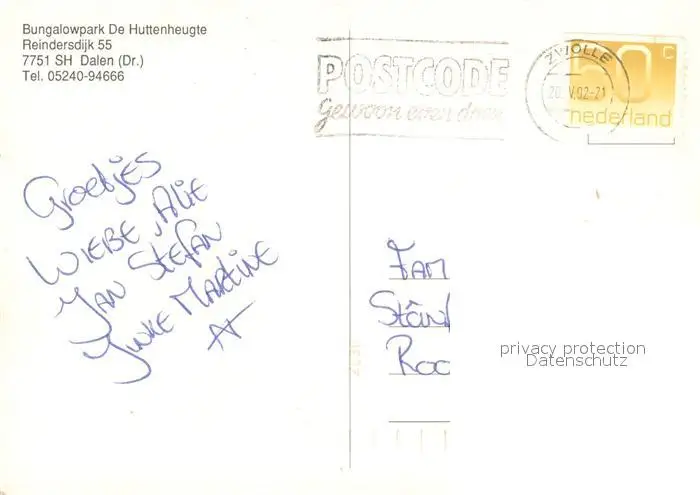 Bungalowpark De Huttenheugte
Reindersdijk 55
7751 SH Dalen (Dr.)
Tel. 05240-94666
POSTCODE
Gewoon even doen
ZWOLLE
20.V.92-21
60 C
nederland
Groetjes
WIEBE, ALIE
JAN STEFAN
MARTINE
FAM
Roo
privacy protection
Datenschutz